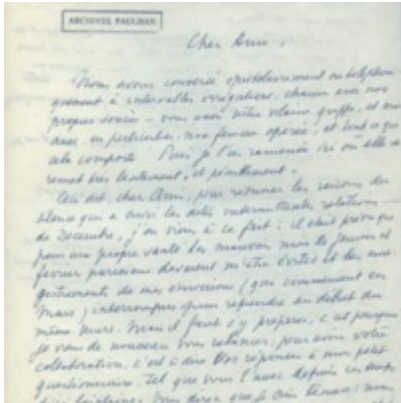 ARCHIVES PAULHAN
Cher Ami,
Nous avons conversé épistolairement ou téléphoni-
quement à intervalles irréguliers, chacun avec nos
propres soucis - vous avec votre vilaine grippe, et moi
avec, en particulier, ma femme opérée, et tout ce que
cela comporte. Puis je l'ai ramenée ici où elle se
remet très lentement, et péniblement.
Ceci dit, cher Ami, pour résumer les raisons du
silence qui a suivi les dites intermittentes relations
de Décembre, j'en viens à ce fait : il était prévu que
pour ma propre santé les mauvais mois de Janvier et
février parisiens devaient m'être évités et les enre-
gistrements de mes émissions (qui commencent en
Mars) interrompus pour reprendre au début du
même Mars. Mais il faut s'y préparer, c'est pourquoi
je viens de nouveau vous relancer, pour avoir votre
collaboration, c'est à dire vos réponses à mon petit
questionnaire, tel que vous l'avez depuis ces temps
déjà lointains. Vous dirai que je